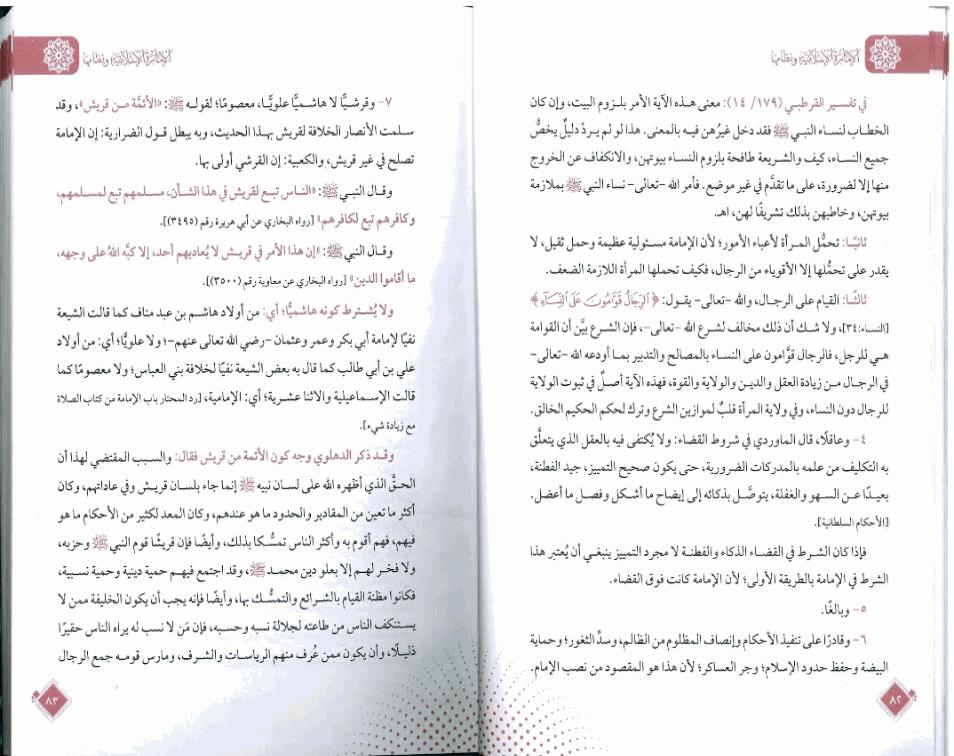 الإمارة الإسلامية ونظامها
في تفسير القرطبي (١٧٩/ ١٤): معنى هذه الآية الأمر بلزوم البيت، وإن كان
الخطاب لنساء النبي ﷺ فقد دخل غيرُهن فيه بالمعنى. هذا لو لم يردْ دليلٌ يخصُّ
جميع النساء، كيف والشريعة طافحة بلزوم النساء بيوتهن، والانكفاف عن الخروج
منها إلا لضرورة، على ما تقدَّم في غير موضع. فأمر الله -تعالى- نساء النبي ﷺ بملازمة
بيوتهن، وخاطبهن بذلك تشريفًا لهن، اهـ.
ثانيًا: تحمُّل المرأة لأعباء الأمور؛ لأن الإمامة مسئولية عظيمة وحمل ثقيل، لا
يقدر على تحمُّلها إلا الأقوياء من الرجال، فكيف تحملها المرأة اللازمة الضعف.
ثالثًا: القيام على الرجال، والله -تعالى- يقول: ﴿الرِّجَالُ قَوَّامُونَ عَلَى النِّسَاءِ﴾
[النساء:٣٤]، ولا شك أن ذلك مخالف لشرع الله -تعالى-، فإن الشرع بيَّن أن القوامة
هي للرجل، فالرجال قوَّامون على النساء بالمصالح والتدبير بما أودعه الله -تعالى-
في الرجال من زيادة العقل والدين والولاية والقوة، فهذه الآية أصلٌ في ثبوت الولاية
للرجال دون النساء، وفي ولاية المرأة قلبٌ لموازين الشرع وترك لحكم الحكيم الخالق.
٤- وعاقلًا، قال الماوردي في شروط القضاء: ولا يُكتفى فيه بالعقل الذي يتعلَّق
به التكليف من علمه بالمدركات الضرورية، حتى يكون صحيح التمييز، جيد الفطنة،
بعيدًا عن السهو والغفلة، يتوصَّل بذكائه إلى إيضاح ما أشكل وفصل ما أعضل.
[الأحكام السلطانية].
فإذا كان الشرط في القضاء الذكاء والفطنة لا مجرد التمييز ينبغي أن يُعتبر هذا
الشرط في الإمامة بالطريقة الأولى؛ لأن الإمامة كانت فوق القضاء.
٥- وبالغًا.
٦- وقادرًا على تنفيذ الأحكام وإنصاف المظلوم من الظالم، وسدِّ الثغور؛ وحماية
البيضة وحفظ حدود الإسلام؛ وجر العساكر؛ لأن هذا هو المقصود من نصب الإمام.
٨٢
الإمارة الإسلامية ونظامها
٧- وقرشيًّا لا هاشميًّا علويًّا، معصومًا؛ لقوله ﷺ: «الأئمَّة من قريش»، وقد
سلمت الأنصار الخلافة لقريش بهذا الحديث، وبه يبطل قول الضرارية: إن الإمامة
تصلح في غير قريش، والكعبية: إن القرشي أولى بها.
وقال النبي ﷺ: «الناس تبع لقريش في هذا الشأن، مسلمهم تبع لمسلمهم،
وكافرهم تبع لكافرهم» [رواه البخاري عن أبي هريرة رقم (٣٤٩٥)].
وقال النبي ﷺ: «إن هذا الأمر في قريش لا يُعاديهم أحد، إلا كبَّه اللهُ على وجهه،
ما أقاموا الدين» [رواه البخاري عن معاوية رقم (٣٥٠٠)].
ولا يُشترط كونه هاشميًّا؛ أي: من أولاد هاشم بن عبد مناف كما قالت الشيعة
نفيًا لإمامة أبي بكر وعمر وعثمان -رضي الله تعالى عنهم-؛ ولا علويًّا؛ أي: من أولاد
علي بن أبي طالب كما قال به بعض الشيعة نفيًا لخلافة بني العباس؛ ولا معصومًا كما
قالت الإسماعيلية والاثنا عشرية؛ أي: الإمامية، [رد المحتار باب الإمامة من كتاب الصلاة
مع زيادة شيء].
وقد ذكر الدهلوي وجه كون الأئمة من قريش فقال: والسبب المقتضي لهذا أن
الحقَّ الذي أظهره الله على لسان نبيه ﷺ إنما جاء بلسان قريش وفي عاداتهم، وكان
أكثر ما تعين من المقادير والحدود ما هو عندهم، وكان المعد لكثير من الأحكام ما هو
فيهم، فهم أقوم به وأكثر الناس تمسُّكا بذلك، وأيضًا فإن قريشًا قوم النبي ﷺ وحزبه،
ولا فخر لهم إلا بعلو دين محمد ﷺ، وقد اجتمع فيهم حمية دينية وحمية نسبية،
فكانوا مظنة القيام بالشرائع والتمسُّك بها، وأيضًا فإنه يجب أن يكون الخليفة ممن لا
يستنكف الناس من طاعته لجلالة نسبه وحسبه، فإن مَن لا نسب له يراه الناس حقيرًا
ذليلًا، وأن يكون ممن عُرف منهم الرياسات والشرف، ومارس قومه جمع الرجال
٨٣